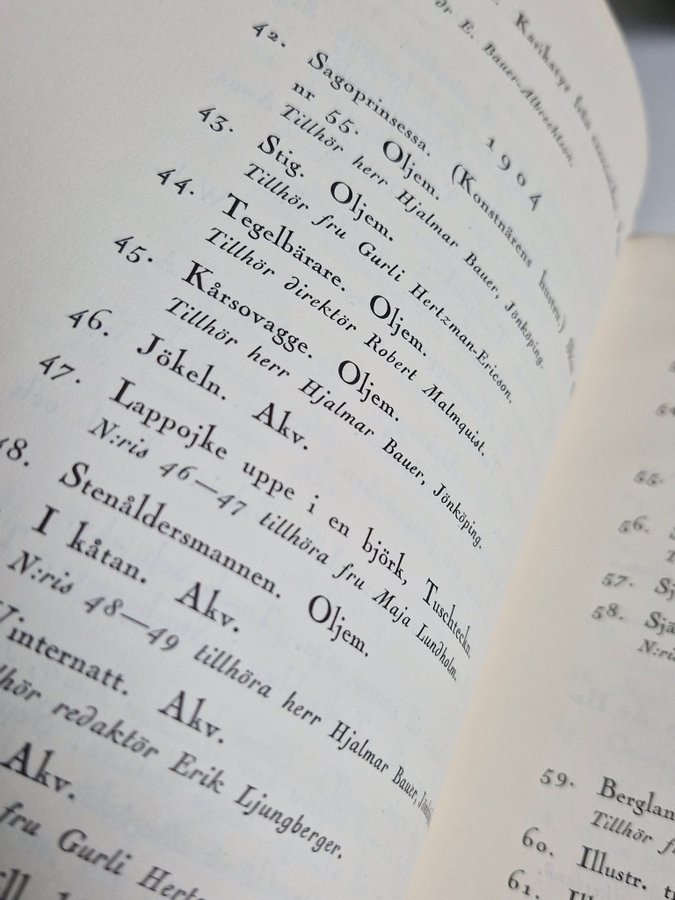 Karikatyr från
dr E. Bauer-Albrechtson.
1904
42. Sagoprinsessa. (Konstnärens hustru.)
nr 55. Oljem.
Tillhör herr Hjalmar Bauer, Jönköping.
43. Stig. Oljem.
Tillhör fru Gurli Hertzman-Ericson.
44. Tegelbärare. Oljem.
Tillhör direktör Robert Malmquist.
45. Kårsovagge. Oljem.
Tillhör herr Hjalmar Bauer, Jönköping.
46. Jökeln. Akv.
47. Lappojke uppe i en björk, Tuschteckn.
N:ris 46—47 tillhöra fru Maja Lundholm.
48. Stenåldersmannen. Oljem.
I kåtan. Akv.
N:ris 48—49 tillhöra herr Hjalmar Bauer,
internatt. Akv.
lhör redaktör Erik Ljungberger.
Akv.
fru Gurli Hert
54.
55.
56.
57. Sj
58. Sjä
N:ri
59. Berglan
Tillhör f
60. Illustr. t
61. Ill